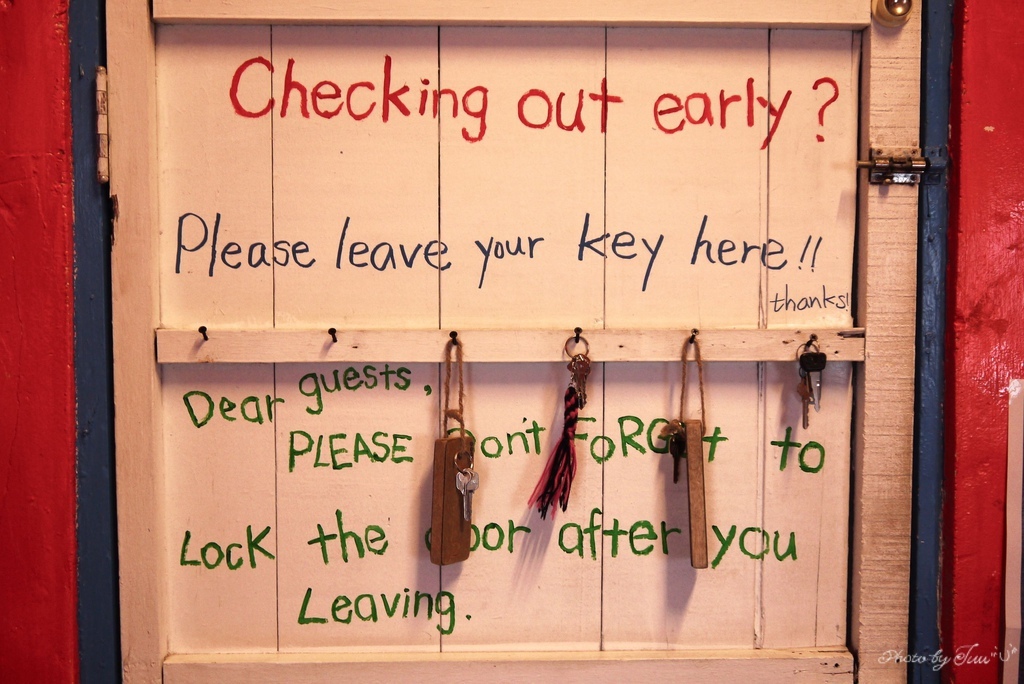 Checking out early?
Please leave your key here!!
thanks!
Dear guests,
PLEASE Don't FoRGet to
LocK the door after you
Leaving.
Photo by Tuu "U"